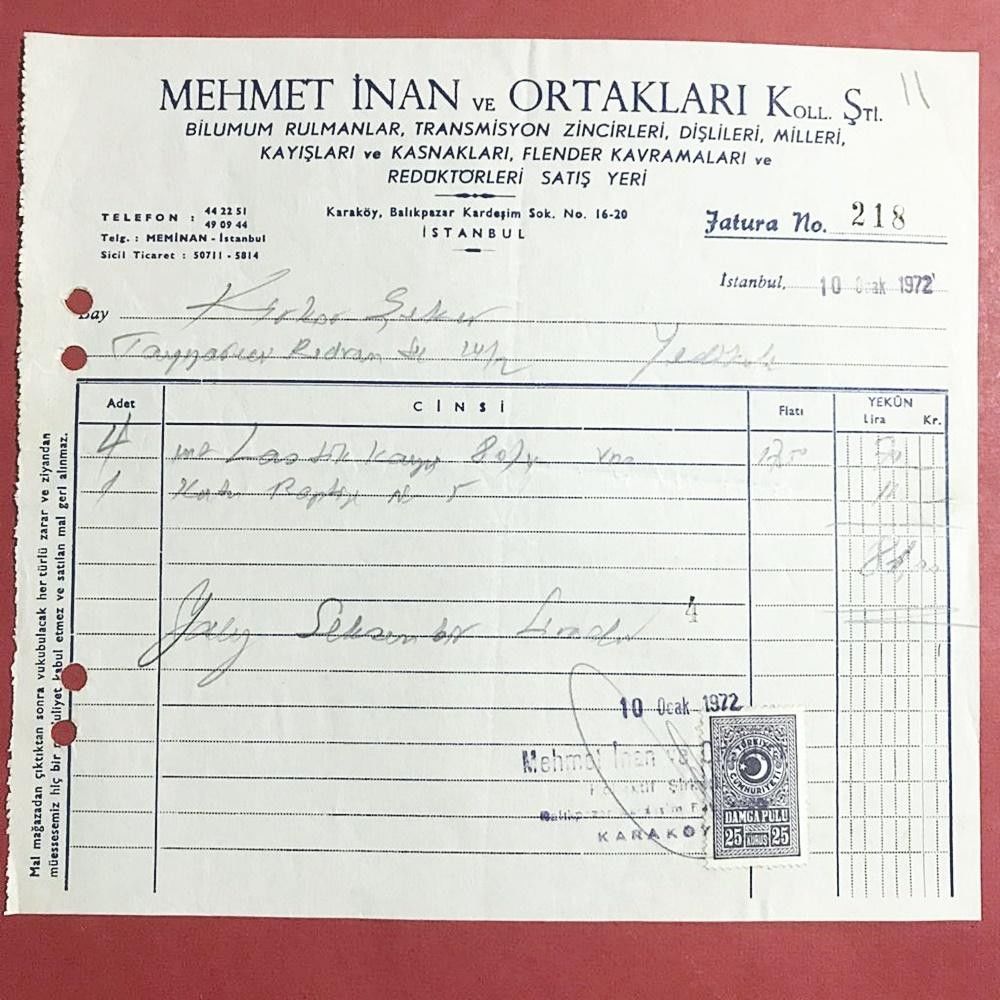 11
MEHMET İNAN VE ORTAKLARI KOLL. ŞTİ.
BİLUMUM RULMANLAR, TRANSMİSYON ZİNCİRLERİ, DİŞLİLERİ, MİLLERİ,
KAYIŞLARI ve KASNAKLARI, FLENDER KAVRAMALARI ve
REDÜKTÖRLERİ SATIŞ YERİ
TELEFON : 44 22 51
49 09 44
Telg. : MEMİNAN - İstanbul
Sicil Ticaret : 50711 - 5814
Karaköy, Balıkpazar Kardeşim Sok. No. 16-20
İSTANBUL
Fatura No. 218
İstanbul, 10 Ocak 1972
Bay Şeker
24/2 Yedikule
Adet CİNSİ Fiatı YEKÛN
Lira Kr.
4 Lastik Kayış 17.50 70
1 5 11
81,00
Yalnız Seksen bir Liradır
4
10 Ocak 1972
Mehmet İnan ve
KARAKÖY
TÜRKİYE
CUMHURİYETİ
DAMGA PULU
25 KURUŞ 25
Mal mağazadan çıktıktan sonra vukubulacak her türlü zarar ve ziyandan
müessesemiz hiç bir kabul etmez ve satılan mal geri alınmaz.